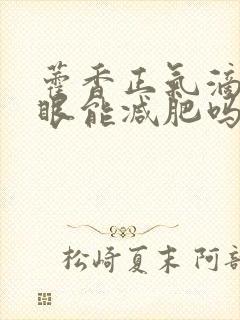 藿香正氣滴
眼能减肥吗
松崎夏末 阿部